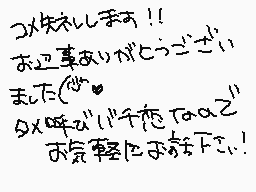 コメ失ネしします!!
お返事ありがとうござい
ました
タメ呼びバチ恋なので
お気軽にお話下さい!